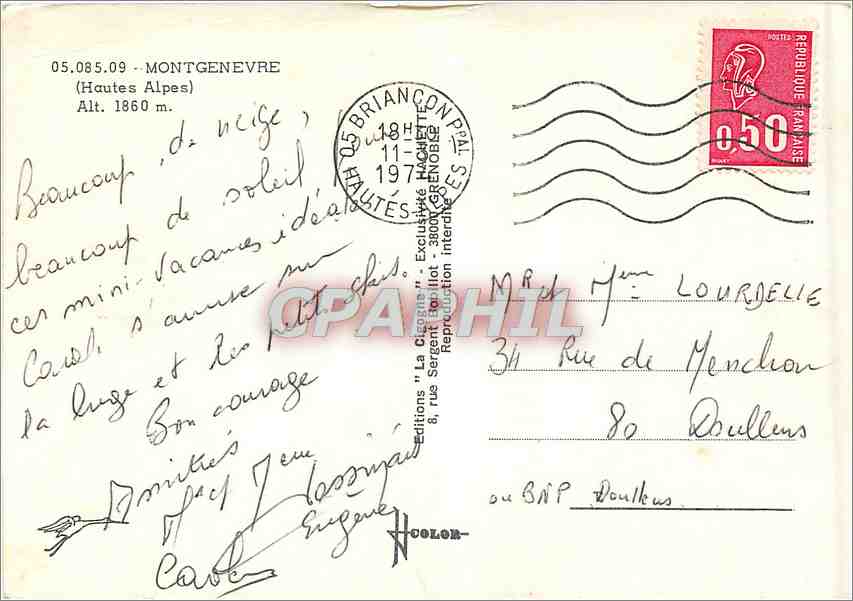 05.085.09 - MONTGENEVRE
(Hautes Alpes)
Alt. 1860 m.
Beaucoup de neige,
beaucoup de soleil
ces mini-vacances idéales
s'amuse sur
la luge et les petits skis.
Bon courage
Amitiés
Mr et Mme
Eugène
Carole
05 BRIANÇON Ppal
18H
11-
197
HAUTES-ALPES
Editions "La Cigogne" - Exclusivité HACHETTE
8, rue Sergent Bobillot - 38000 GRENOBLE
Reproduction interdite
COLOR
CPAPHIL
POSTES
REPUBLIQUE FRANÇAISE
0,50
BEQUET
Mr et Mme LOURDELLE
34 Rue de Menchon
80 Doullens
ou BNP Doullens